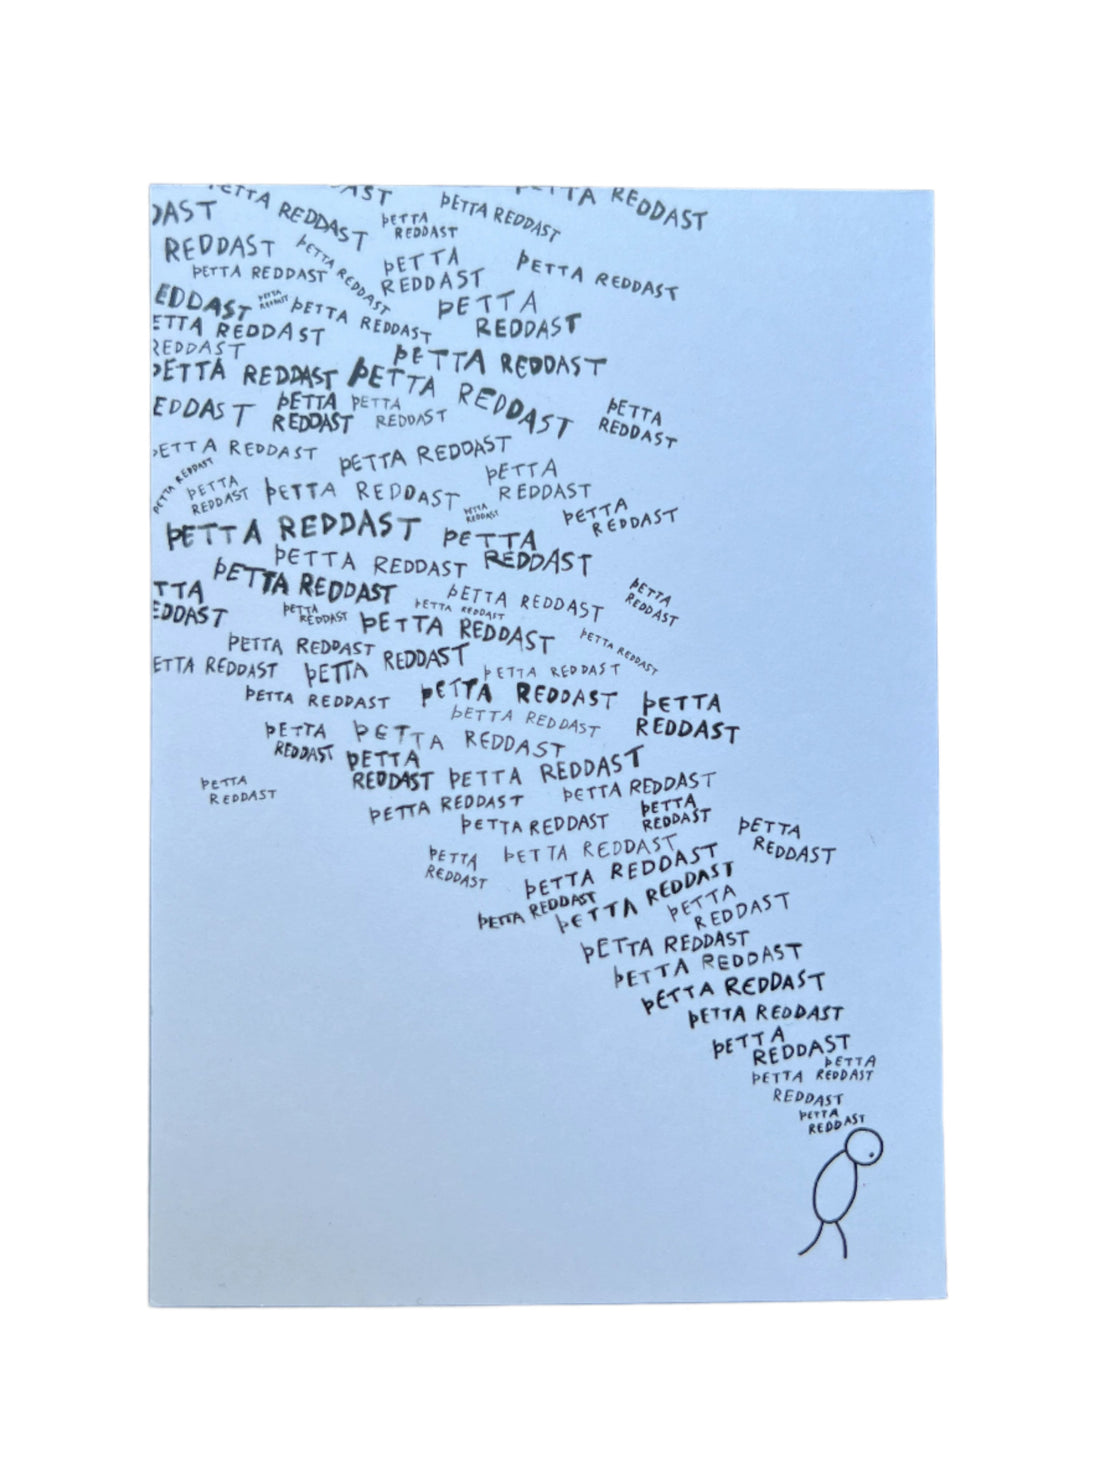 ÞETTA REDDAST
ÞETTA REDDAST
ÞETTA REDDAST
ÞETTA
REDDAST
REDDAST
ÞETTA REDDAST
ÞETTA REDDAST
ÞETTA
REDDAST
ÞETTA REDDAST
EDDAST
ÞETTA
REDDAST
ÞETTA REDDAST
ÞETTA
REDDAST
ETTA REDDAST
REDDAST
ÞETTA REDDAST
ÞETTA REDDAST
ÞETTA REDDAST
EDDAST
ÞETTA
REDDAST
ÞETTA
REDDAST
ÞETTA
REDDAST
ÞETTA REDDAST
ÞETTA REDDAST
ÞETTA
REDDAST
ÞETTA REDDAST
ÞETTA
REDDAST
ÞETTA REDDAST
ÞETTA
REDDAST
ÞETTA
REDDAST
ÞETTA REDDAST
ÞETTA
REDDAST
ÞETTA REDDAST
ÞETTA REDDAST
TTA
EDDAST
ÞETTA REDDAST
ÞETTA
REDDAST
ÞETTA
REDDAST
ÞETTA REDDAST
ÞETTA REDDAST
ÞETTA REDDAST
ÞETTA REDDAST
ETTA REDDAST
ÞETTA REDDAST
ÞETTA REDDAST
ÞETTA REDDAST
ÞETTA REDDAST
ÞETTA
REDDAST
ÞETTA REDDAST
ÞETTA
REDDAST
ÞETTA REDDAST
ÞETTA
REDDAST
ÞETTA REDDAST
ÞETTA
REDDAST
ÞETTA REDDAST
ÞETTA REDDAST
ÞETTA
REDDAST
ÞETTA REDDAST
ÞETTA
REDDAST
ÞETTA
REDDAST
ÞETTA REDDAST
ÞETTA REDDAST
ÞETTA REDDAST
ÞETTA REDDAST
ÞETTA
REDDAST
ÞETTA REDDAST
ÞETTA REDDAST
ÞETTA REDDAST
ÞETTA REDDAST
ÞETTA
REDDAST
ÞETTA
ÞETTA REDDAST
REDDAST
ÞETTA
REDDAST